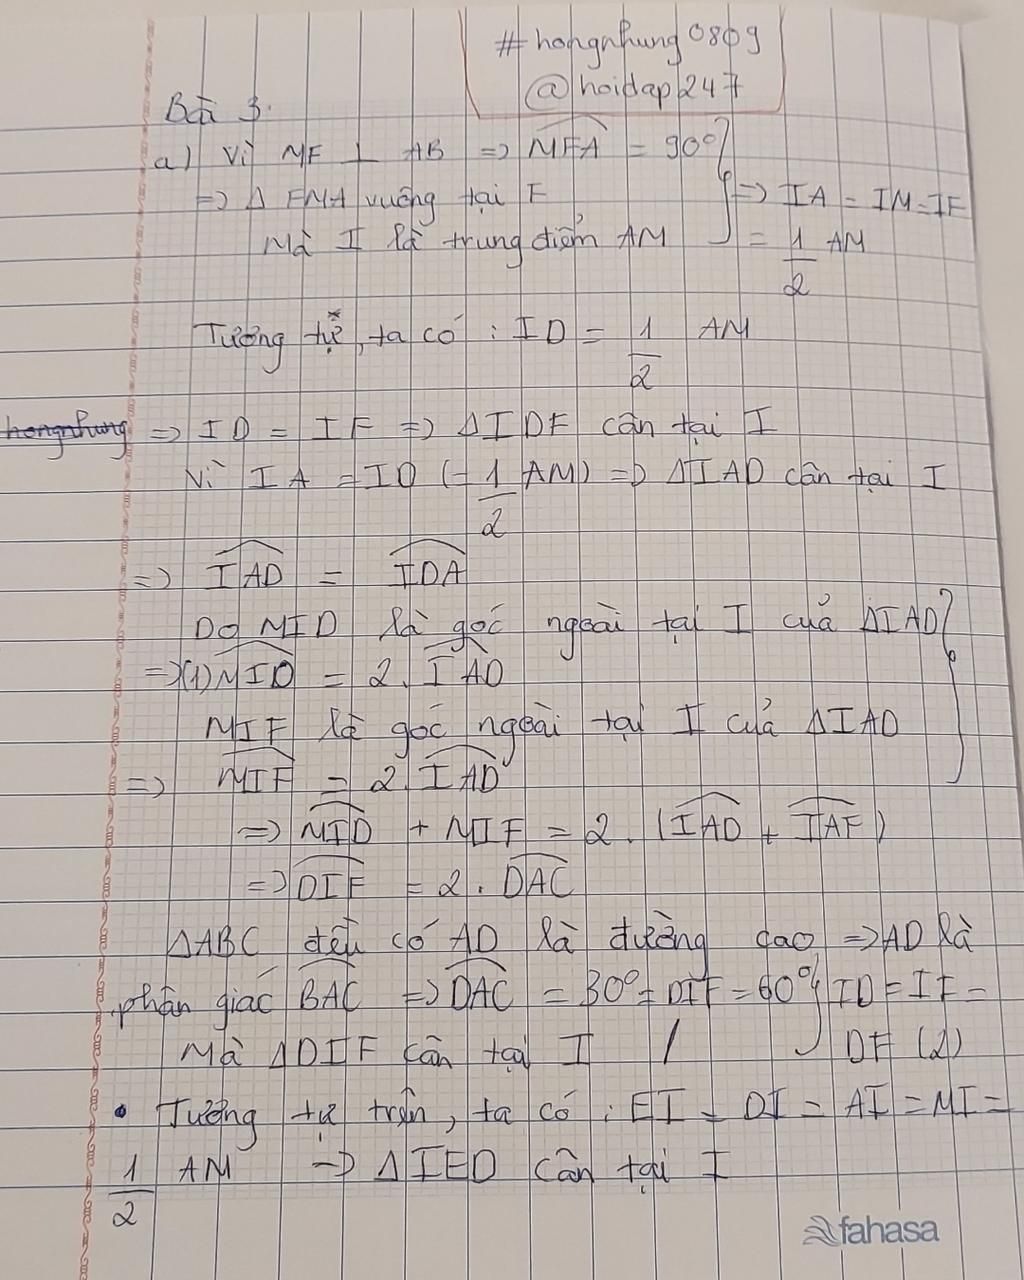 #hongnhung0809
@hoidap247
Bài 3.
a) Vì MF ⊥ AB => MFA = 90°
=> Δ FMA vuông tại F => IA = IM = IF
Mà I là trung điểm AM = 1/2 AM
Tương tự, ta có : ID = 1/2 AM
hongnhung => ID = IF => ΔIDF cân tại I
Vì IA = ID (= 1/2 AM) => ΔIAD cân tại I
=> IAD = IDA
Do MID là góc ngoài tại I của ΔIAD
=> (1) MID = 2. IAD
MIF là góc ngoài tại I của ΔIAD
=> MIF = 2. IAD
=> MID + MIF = 2. (IAD + IAF)
=> DIF = 2. DAC
ΔABC đều có AD là đường cao => AD là
phân giác BAC => DAC = 30° = DIF = 60° ID = IF =
Mà ΔDIF cân tại I / DF (2)
• Tương tự trên, ta có : EI = DI = AI = MI =
1/2 AM => ΔIED cân tại I
fahasa